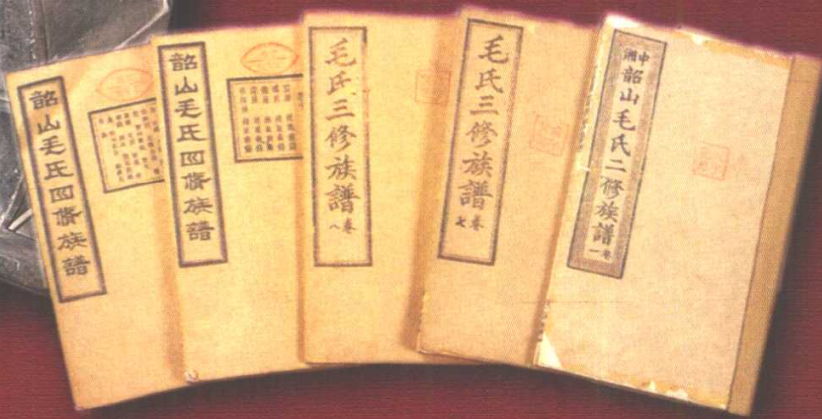 韶山毛氏四修族譜
韶山毛氏四修族譜
毛氏三修族譜
卷八
毛氏三修族譜
卷七
中湘
韶山毛氏二修族譜
卷一